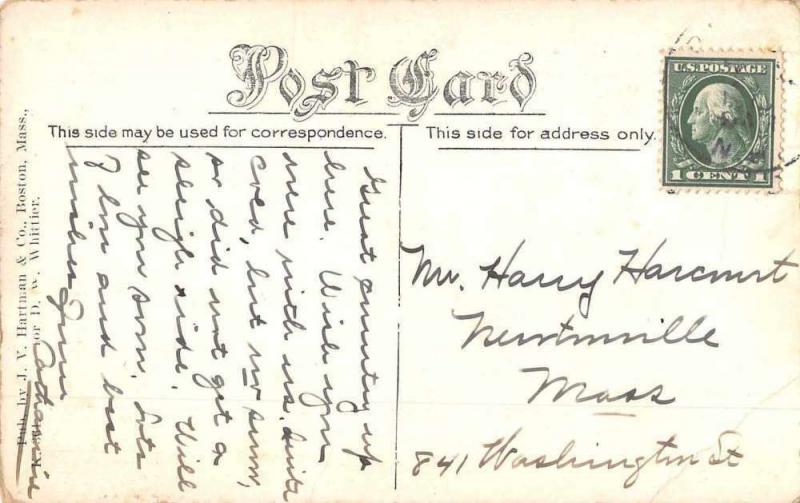 Post Card
This side may be used for correspondence.
This side for address only.
U.S. POSTAGE
1 CENT 1
Great country up
here. Wish you
were with us. Quite
cold, but no snow,
so did not get a
sleigh ride. Will
see you soon. Lots
of love and best
wishes from
Catharine
Mr. Harry Harcourt
Newtonville
Mass
841 Washington St
Pub. by J. V. Hartman & Co., Boston, Mass.,
or D. W. Whittier.